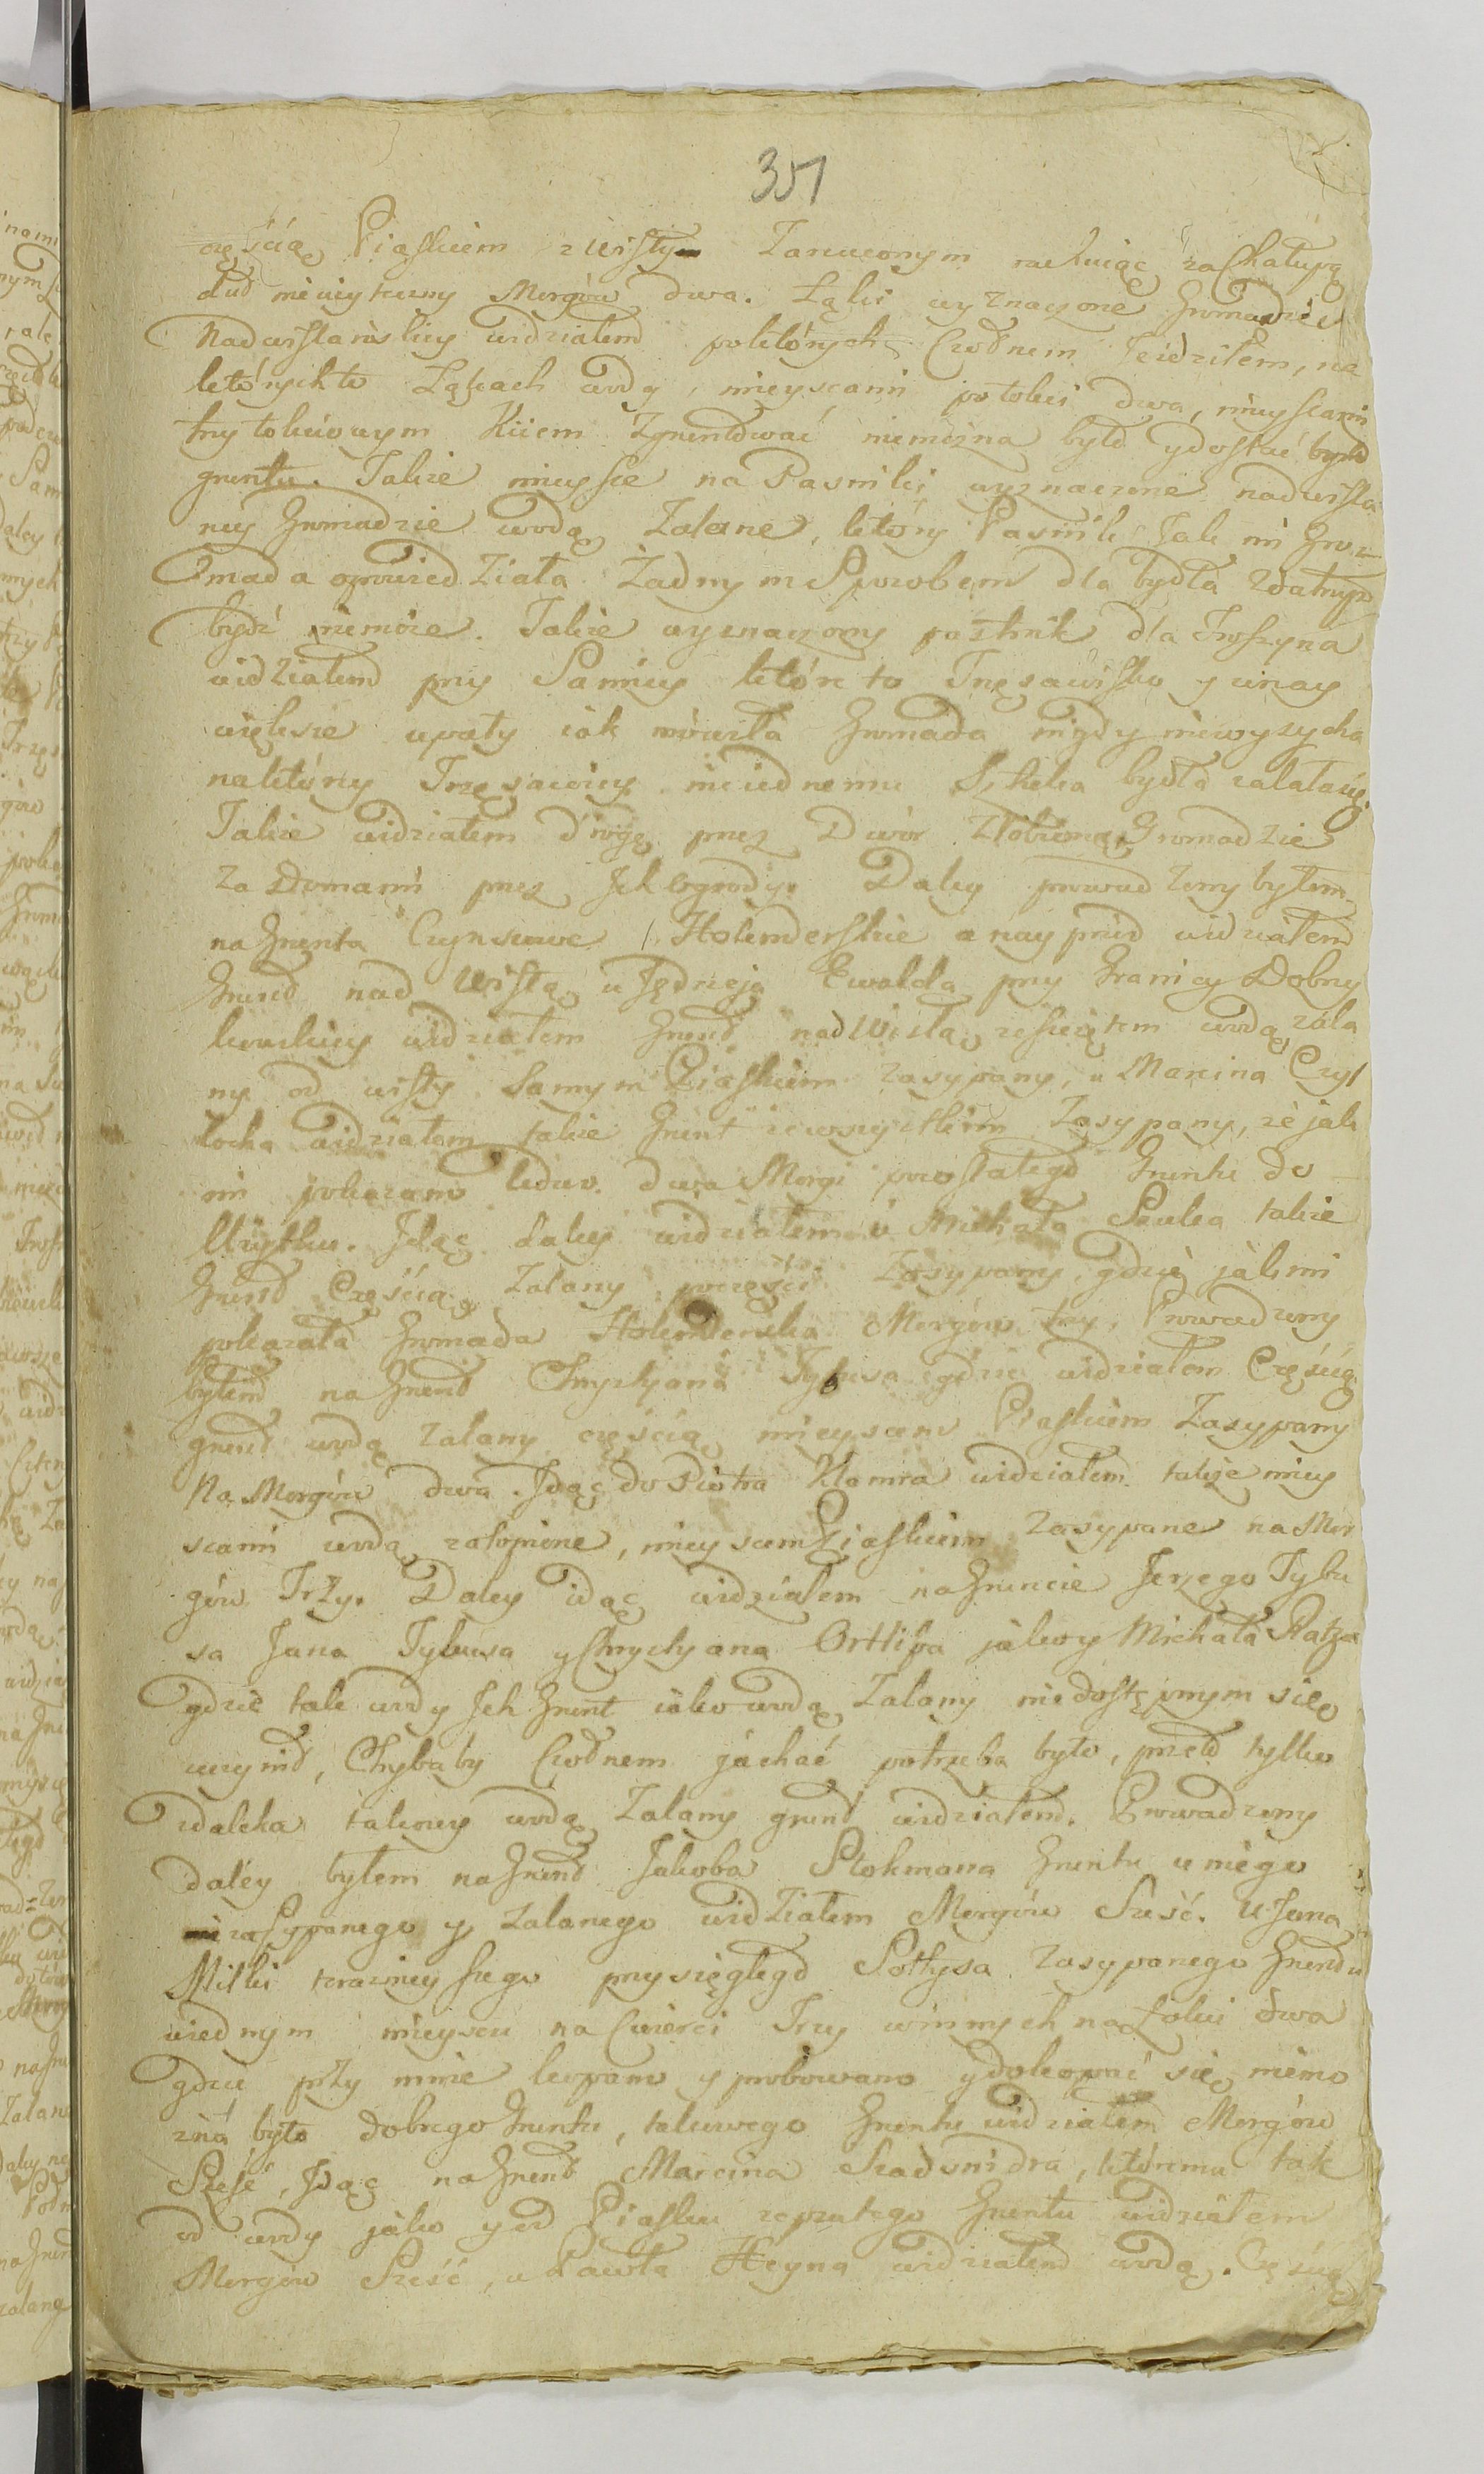 351
częścią Piaskiem z Wisły Zarzuconym rachuiąc za Chałupą
Łąki wyznaczone Gromadzie
Nadwislańskiey widziałem poktórych Czołnem Jeździłem, na
których to Łąkach wody, mieyscami potokci dwa, mieyscami
trzytokciowym Kiiem Zgruntować niemożna było y dostać było
gruntu. Także mieysce na Pasnik wyznaczone nadwisla
ney Gromadzie wodą Zalane, który Pasnik Jak mi Gro=
mada opowiedziała Żadnym Sposobem dla bydła zdatnym
bydź niemoże. Także wyznaczony pastnik dla Troszyna
widziałem przy Sannicy które to Trzęsawisko y w nay
większe upały iak mówiła Gromada nigdy niewysycha
naktóry Trzęsawicy nie iednemu Sztuka bydła
Także widziałem drogę przez Dwór Zrobioną Gromadzie
Za Domami przez Jch Ogrody. Daley prowadzony byłem
na Grunta Czynszowe Holenderskie a nayprzód widziałem
Grund nad Wisłą u Jędrzeja Ewalda przy Granicy Dobrzy
kowskiey widziałem Grunt nad Wisłą ze szczętem wodą zala
ny od wisły Samym Piaskiem zasypany, u Marcina Czyż
locha widziałem także Grunt zewszystkim Zasypany, że jak
mi pokazano ledwo dwa Morgi pozostałego Gruntu do
Użytku. Jdąc daley widziałem u Michała Szulca także
Grund Częścią Zalany poczęści Zasypany, gdzie jak mi
pokazała Gromada Holenderska Morgów trzy, Prowadzony
byłem na Grund Chrystyana Tybusa gdzie widziałem Częścią
grund wodą zalany częścią mieyscem Piaskiem Zasypany
Na Morgów dwa. Jdąc do Piotra Klamra widziałem także miey
scami wodą zatopione, mieyscem Piaskiem Zasypane na Mor
gów Trzy. Daley idąc widziałem na Gruncie Jerzego Tybu
sa Jana Tybusa y Chrystyana Ortlipa jakoy Michała Ratza
gdzie tak wody Jch Grunt iako wodą Zalany niedostępnym się
uczynił, Chybaby Czołnem jachać potrzeba było, przeto tylko
zdaleka takowy wodą Zalany grund widziałem. Prowadzony
daléy byłem na Grund Jakoba Stokmana Gruntu u niego
zasypanego y zalanego widziałem Morgów Sześć. U Jana
Milki terazniey szego przysięgłego Sołtysa Zasypanego Grundu
wiednym mieyscu na Cwierci Trzy w innych na Łokci dwa
gdzie przy mnie kopano y probowano y dokopać się niemo
żna było dobrego Gruntu, takowego Gruntu widziałem Morgów
Sześć, Jdąc na Grund Marcina Szadsnidra, któremu tak
od wody jako y od Piasku zepsutego Gruntu widziałem
Morgów Sześć, u Pawła Heyna widziałem wodą Częścią